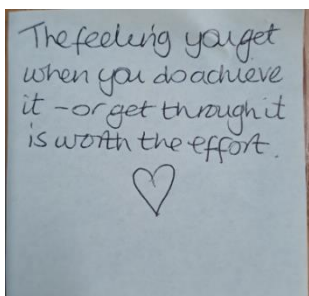 The feeling you get
when you do achieve
it - or get through it
is worth the effort.